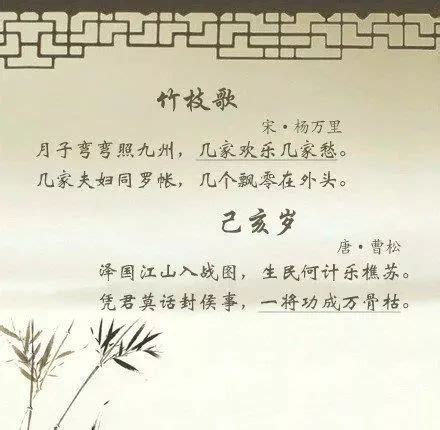 竹枝歌
宋·杨万里
月子弯弯照九州，几家欢乐几家愁。
几家夫妇同罗帐，几个飘零在外头。
己亥岁
唐·曹松
泽国江山入战图，生民何计乐樵苏。
凭君莫话封侯事，一将功成万骨枯。